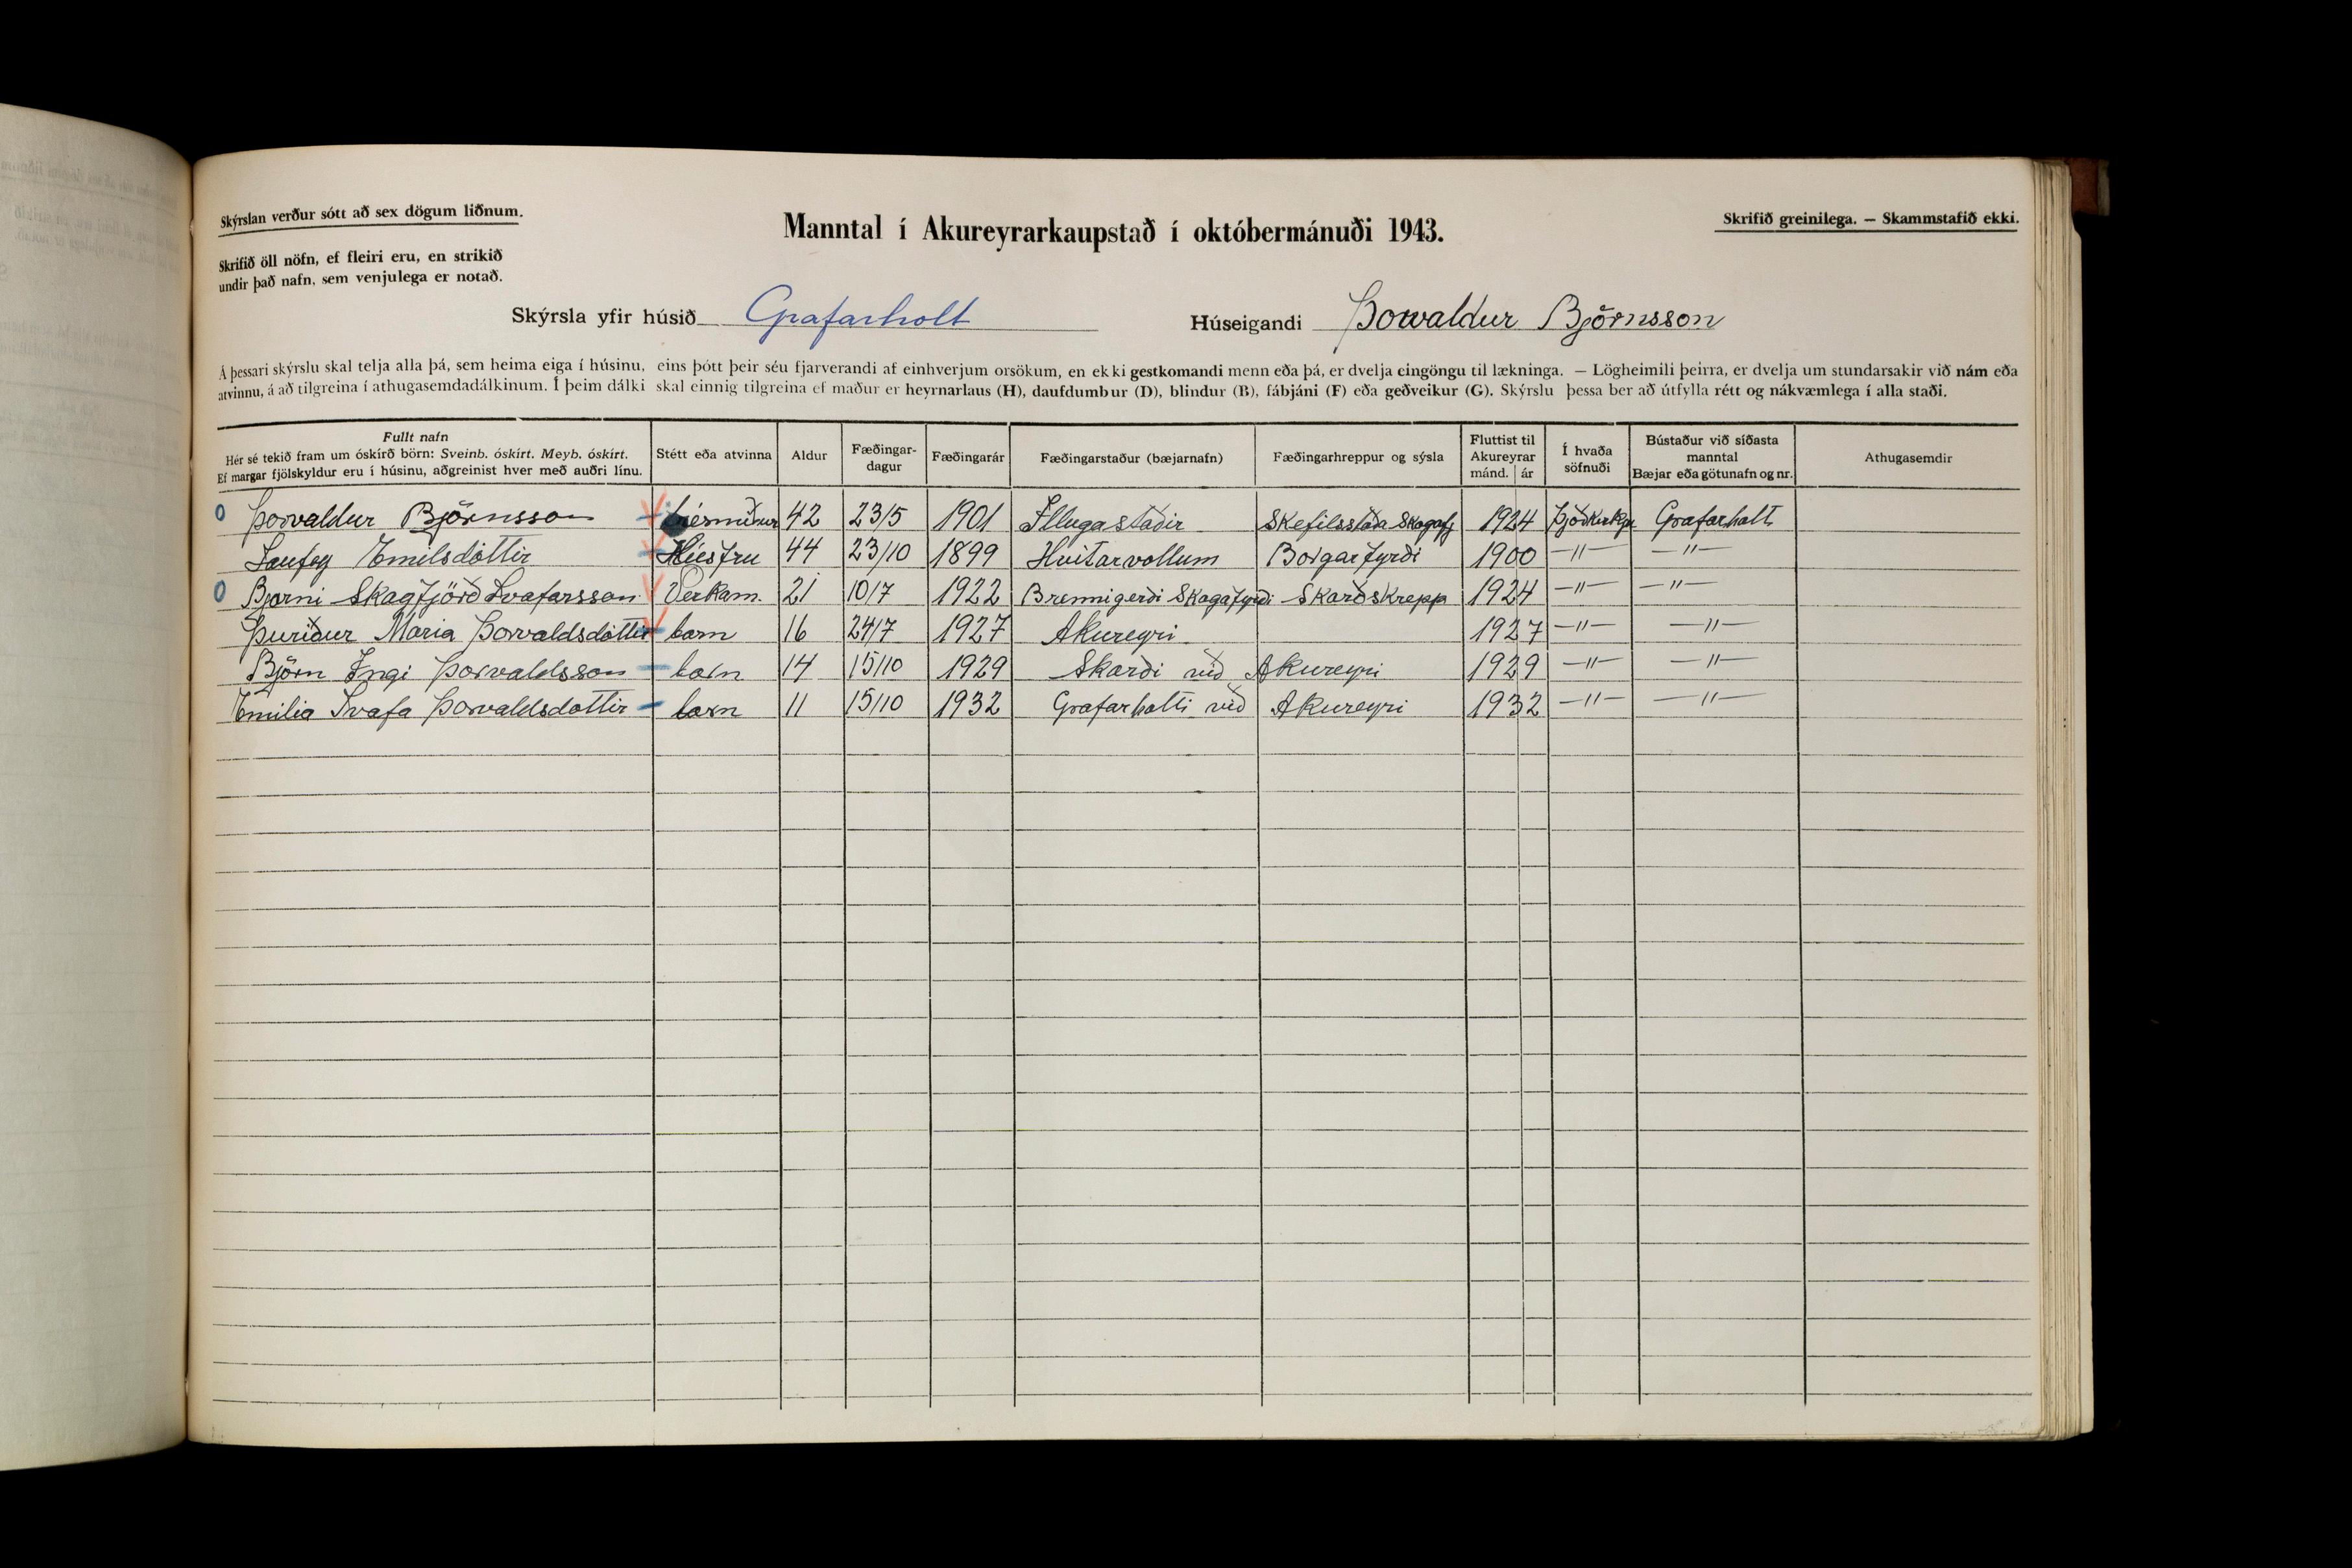 Skýrslan verður sótt að sex dögum liðnum.
Manntal í Akureyrarkaupstað í októbermánuði 1943.
Skrifið greinilega. — Skammstafið ekki.
Skrifið öll nöfn, ef fleiri eru, en strikið
undir það nafn, sem venjulega er notað.
Skýrsla yfir húsið Grafarholt Húseigandi Þorvaldur Björnsson
Á þessari skýrslu skal telja alla þá, sem heima eiga í húsinu, eins þótt þeir séu fjarverandi af einhverjum orsökum, en ekki gestkomandi menn eða þá, er dvelja eingöngu til lækninga. — Lögheimili þeirra, er dvelja um stundarsakir við nám eða
atvinnu, á að tilgreina í athugasemdadálkinum. Í þeim dálki skal einnig tilgreina ef maður er heyrnarlaus (H), daufdumbur (D), blindur (B), fábjáni (F) eða geðveikur (G). Skýrslu þessa ber að útfylla rétt og nákvæmlega í alla staði.
Fullt nafn
Hér sé tekið fram um óskírð börn: Sveinb. óskírt. Meyb. óskírt.
Ef margar fjölskyldur eru í húsinu, aðgreinist hver með auðri línu.
Stétt eða atvinna
Aldur
Fæðingar-
dagur
Fæðingarár
Fæðingarstaður (bæjarnafn)
Fæðingarhreppur og sýsla
Fluttist til
Akureyrar
mánd. ár
Í hvaða
söfnuði
Bústaður við síðasta
manntal
Bæjar eða götunafn og nr.
Athugasemdir
Þorvaldur Björnsson trésmiður 42 23/5 1901 Illugastaðir Skefilsstaða Skagafj 1924 Þjóðkirkju Grafarholt
Laufey Emilsdóttir Húsfru 44 23/10 1899 Hvitarvollum Borgarfyrði 1900 —〃— —〃—
Bjarni Skagfjörð Svafarsson Verkam. 21 10/7 1922 Brennigerði Skagafyrði Skarðskrepp 1924 —〃— —〃—
Þuriður Maria Þorvaldsdóttir barn 16 24/7 1927 Akureyri 1927 —〃— —〃—
Björn Ingi Þorvaldsson barn 14 15/10 1929 Skarði við Akureyri 1929 —〃— —〃—
Emilia Svafa Þorvaldsdottir barn 11 15/10 1932 Grafarholti við Akureyri 1932 —〃— —〃—